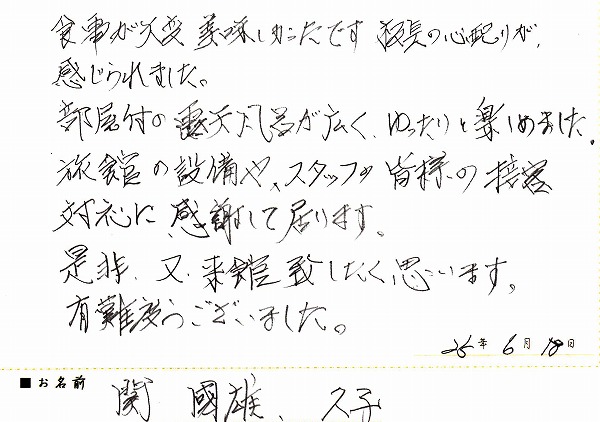 食事が大変美味しかったです 板長の心配りが、
感じられました。
部屋付の露天風呂が広く、ゆったりと楽しめました。
旅館の設備や、スタッフの皆様の接客
対応に感謝して居ります。
是非、又、来館致したく思います。
有難度うございました。
25年 6月 18日
■お名前
関 國雄、久子